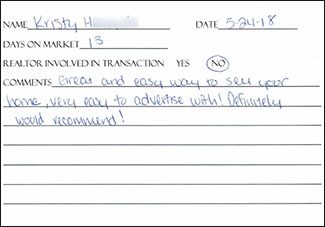 NAME Kristy H DATE 5-24-18
DAYS ON MARKET 13
REALTOR INVOLVED IN TRANSACTION YES NO
COMMENTS Great and easy way to sell your
home, very easy to advertise with! Definitely
would recommend!